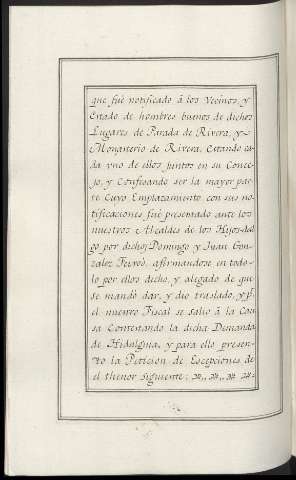 que fuè notificado à los Vecinos, y
Estado de hombres buenos de dichos
Lugares de Parada de Rivera, y
Monasterio de Rivera, Estando ca-
da vno de ellos juntos en su Conce-
jo, y Confesando ser la mayor par-
te Cuyo Emplazamiento con sus no-
tificaciones fuè presentado ante los
nuestros Alcaldes de los Hijos-dal
go por dichos Domingo y Juan Gon-
zalez Feiroò, afirmandose en todo
lo por ellos dicho, y alegado de que
se mandò dar, y dio traslado, y pr.
el nuestro Fiscal se saliò à la Cau
sa Contestando la dicha Demanda
de Hidalguia, y para ello presen-
tò la Peticion de Escepciones de
el thenor siguiente: